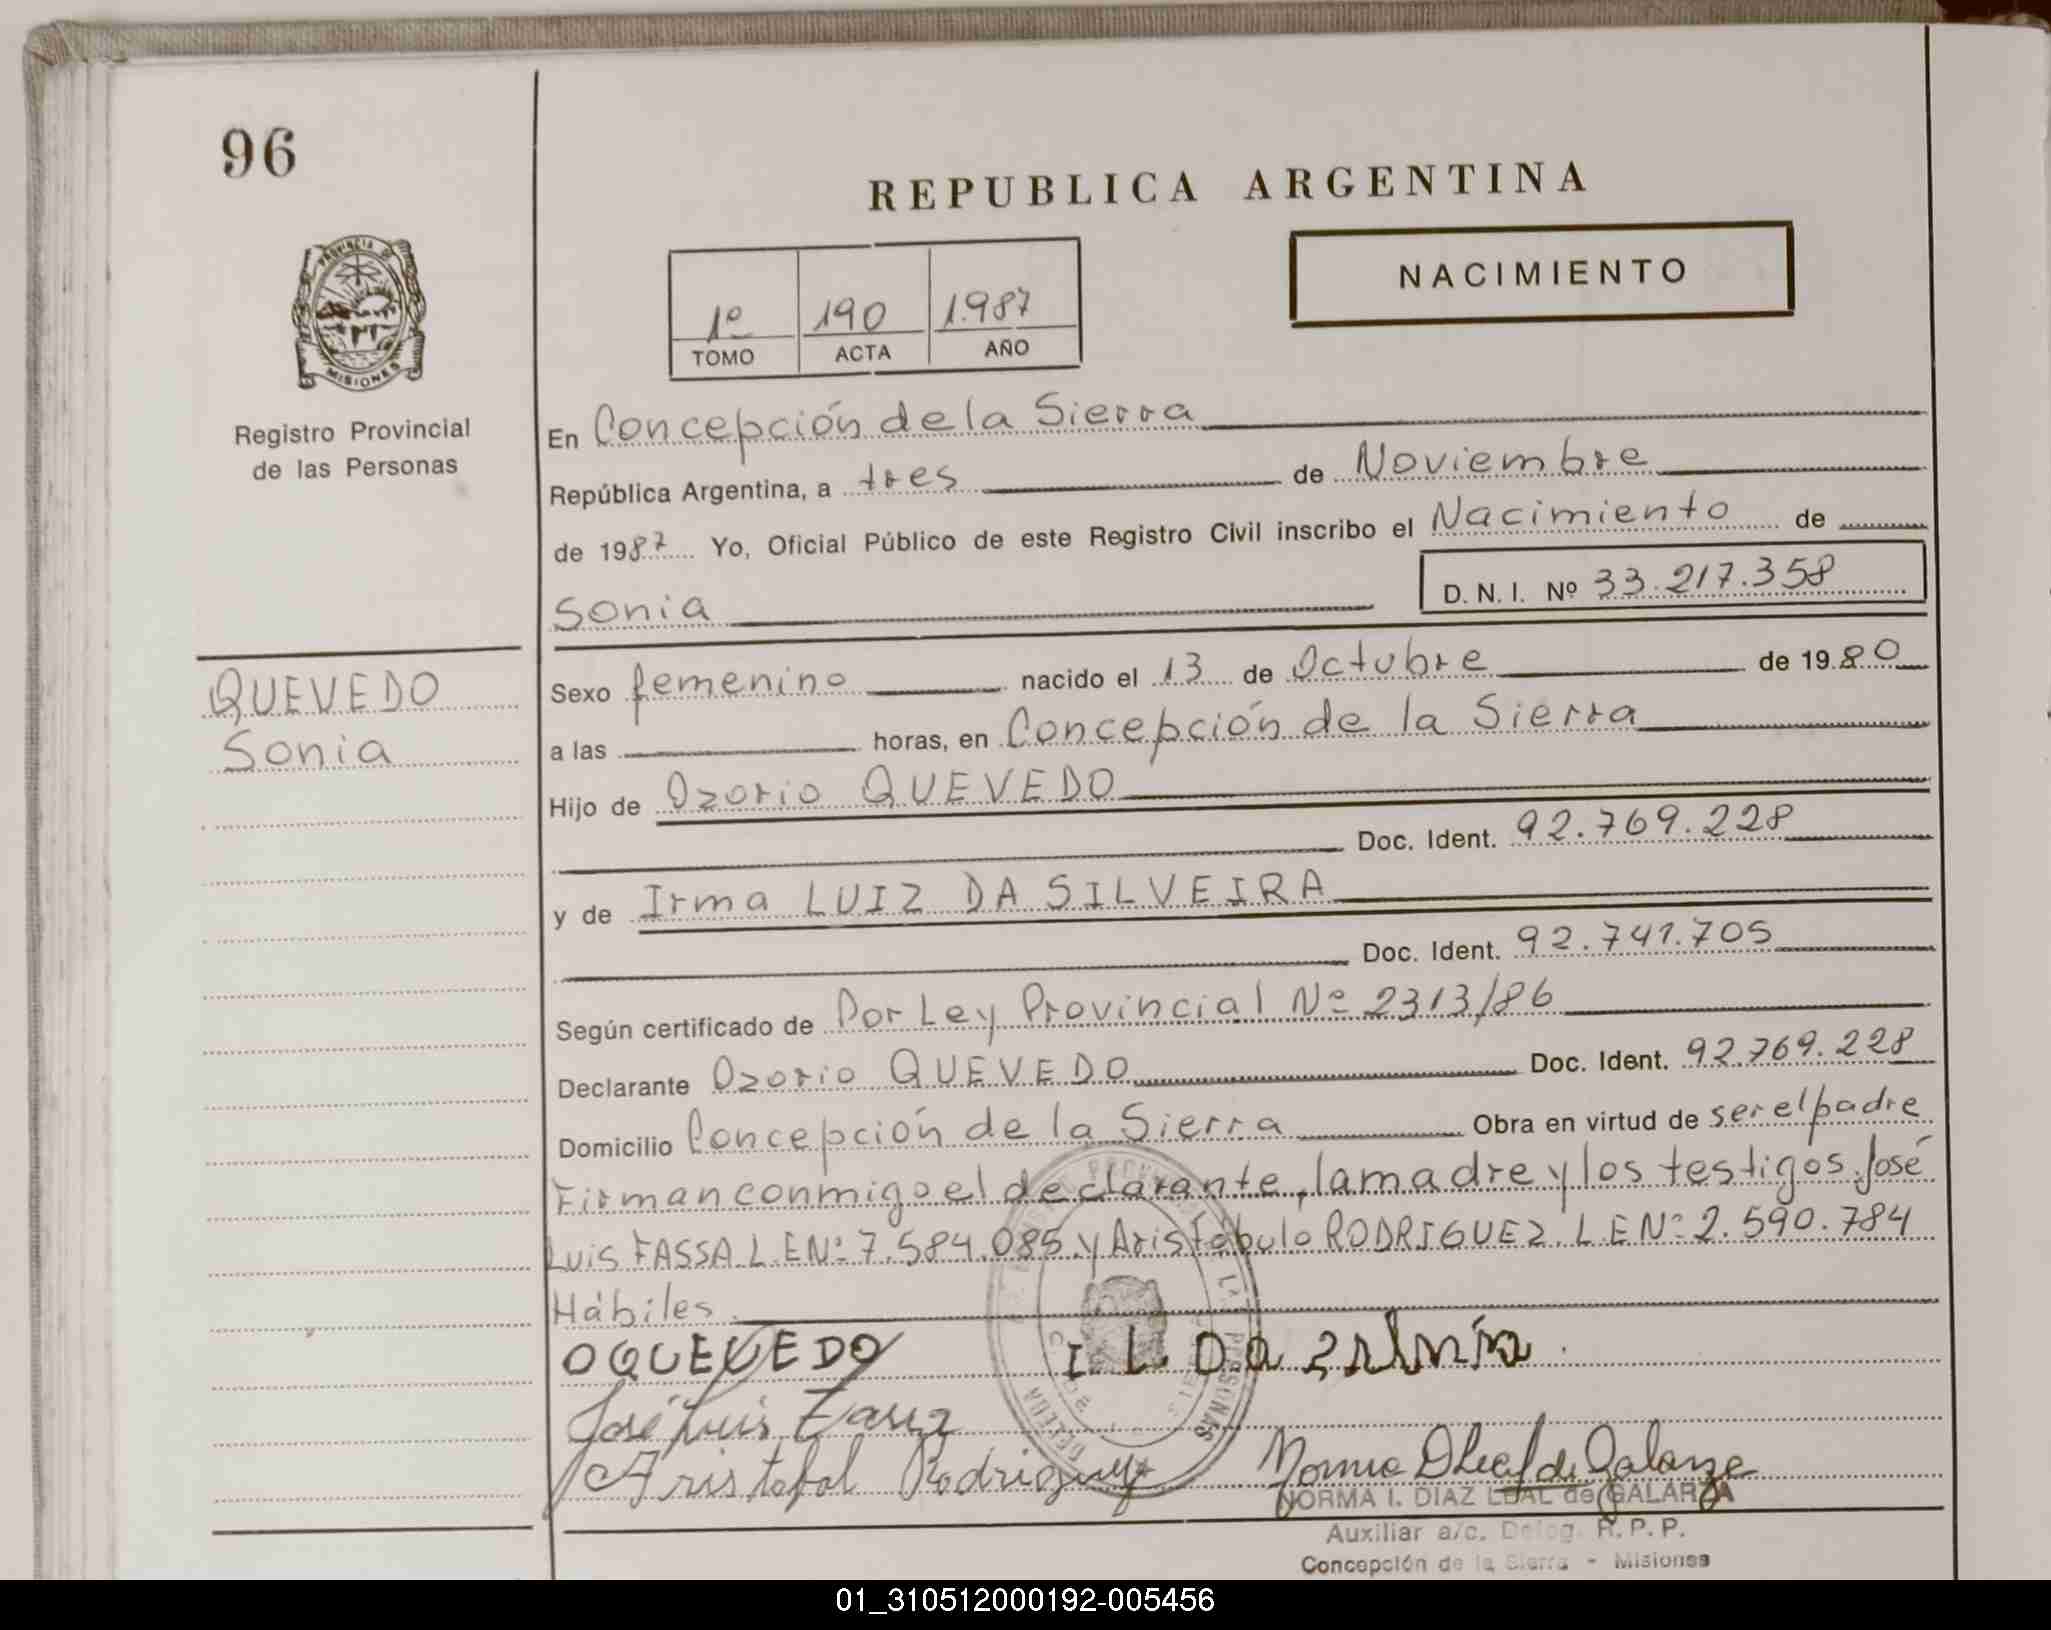 96
REPUBLICA ARGENTINA
NACIMIENTO
1º 190 1.987
TOMO ACTA AÑO
PROVINCIA DE
MISIONES
Registro Provincial
de las Personas
En Concepción de la Sierra
República Argentina, a tres de Noviembre
de 1987 Yo, Oficial Público de este Registro Civil inscribo el Nacimiento de
D. N. I. Nº 33.217.358
Sonia
QUEVEDO
Sonia
Sexo femenino nacido el 13 de Octubre de 1980
a las horas, en Concepción de la Sierra
Hijo de Ozorio QUEVEDO
Doc. Ident. 92.769.228
y de Irma LUIZ DA SILVEIRA
Doc. Ident. 92.741.705
Según certificado de Por Ley Provincial Nº 2313/86
Declarante Ozorio QUEVEDO Doc. Ident. 92.769.228
Domicilio Concepción de la Sierra Obra en virtud de ser el padre
Firman conmigo el declarante, la madre y los testigos José
Luis FASSA L.E Nº 7.584.085 y Aristóbulo RODRIGUEZ L E Nº 2.590.784
Hábiles.
O QUEVEDO I L. Da
José Luis Fassa
Aristobol Rodriguez
NORMA I. DIAZ LEAL de GALARZA
Auxiliar a/c. Deleg. R. P. P.
Concepción de la Sierra - Misiones
01_310512000192-005456